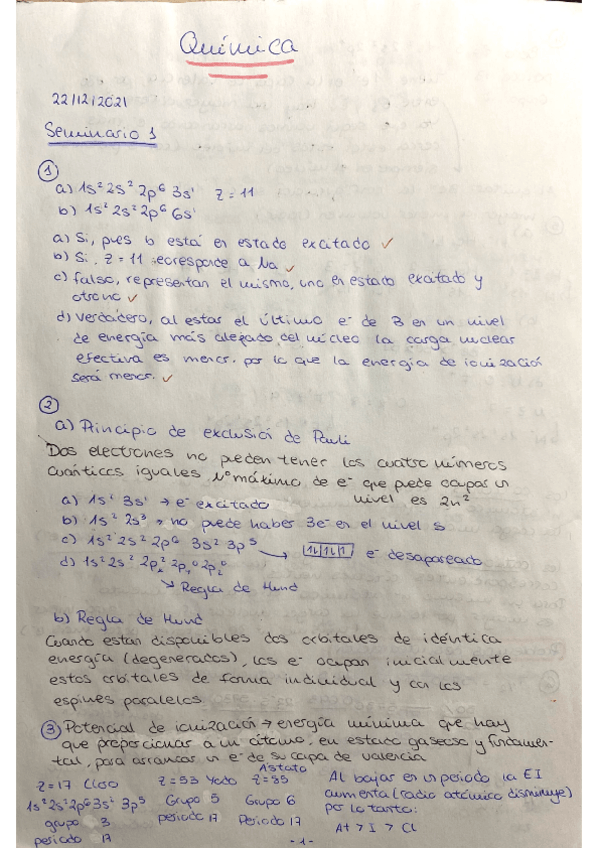 Química
22/12/2021
Seminario 1
①
a) 1s² 2s² 2p⁶ 3s¹ Z = 11
b) 1s² 2s² 2p⁶ 6s¹
a) Si, pues b está en estado excitado ✓
b) Si, Z = 11 corresponde a Na ✓
c) falso, representan el mismo, uno en estado excitado y
otro no ✓
d) Verdadero, al estar el último e⁻ de B en un nivel
de energía más alejado del núcleo la carga nuclear
efectiva es menor, por lo que la energía de ionización
será menor. ✓
②
a) Principio de exclusión de Pauli
Dos electrones no pueden tener los cuatro números
cuánticos iguales. Nº máximo de e⁻ que puede ocupar un
nivel es 2n²
a) 1s¹ 3s¹ → e⁻ excitado
b) 1s² 2s³ → no puede haber 3e⁻ en el nivel s
c) 1s² 2s² 2p⁶ 3s² 3p⁵ → e⁻ desapareado
d) 1s² 2s² 2pₓ² 2pᵧ⁰ 2p_z⁰
↳ Regla de Hund
b) Regla de Hund
Cuando están disponibles dos orbitales de idéntica
energía (degenerados), los e⁻ ocupan inicialmente
estos orbitales de forma individual y con los
espines paralelos.
③ Potencial de ionización → energía mínima que hay
que proporcionar a un átomo, en estado gaseoso y fundamen-
tal, para arrancar un e⁻ de su capa de valencia
Z = 17 Cloro
1s² 2s² 2p⁶ 3s² 3p⁵
grupo 3
periodo 17
Z = 53 Yodo
Grupo 5
periodo 17
Astato
Z = 85
Grupo 6
Periodo 17
Al bajar en un periodo la EI
aumenta (radio atómico disminuye)
por lo tanto:
At > I > Cl
- 1 -